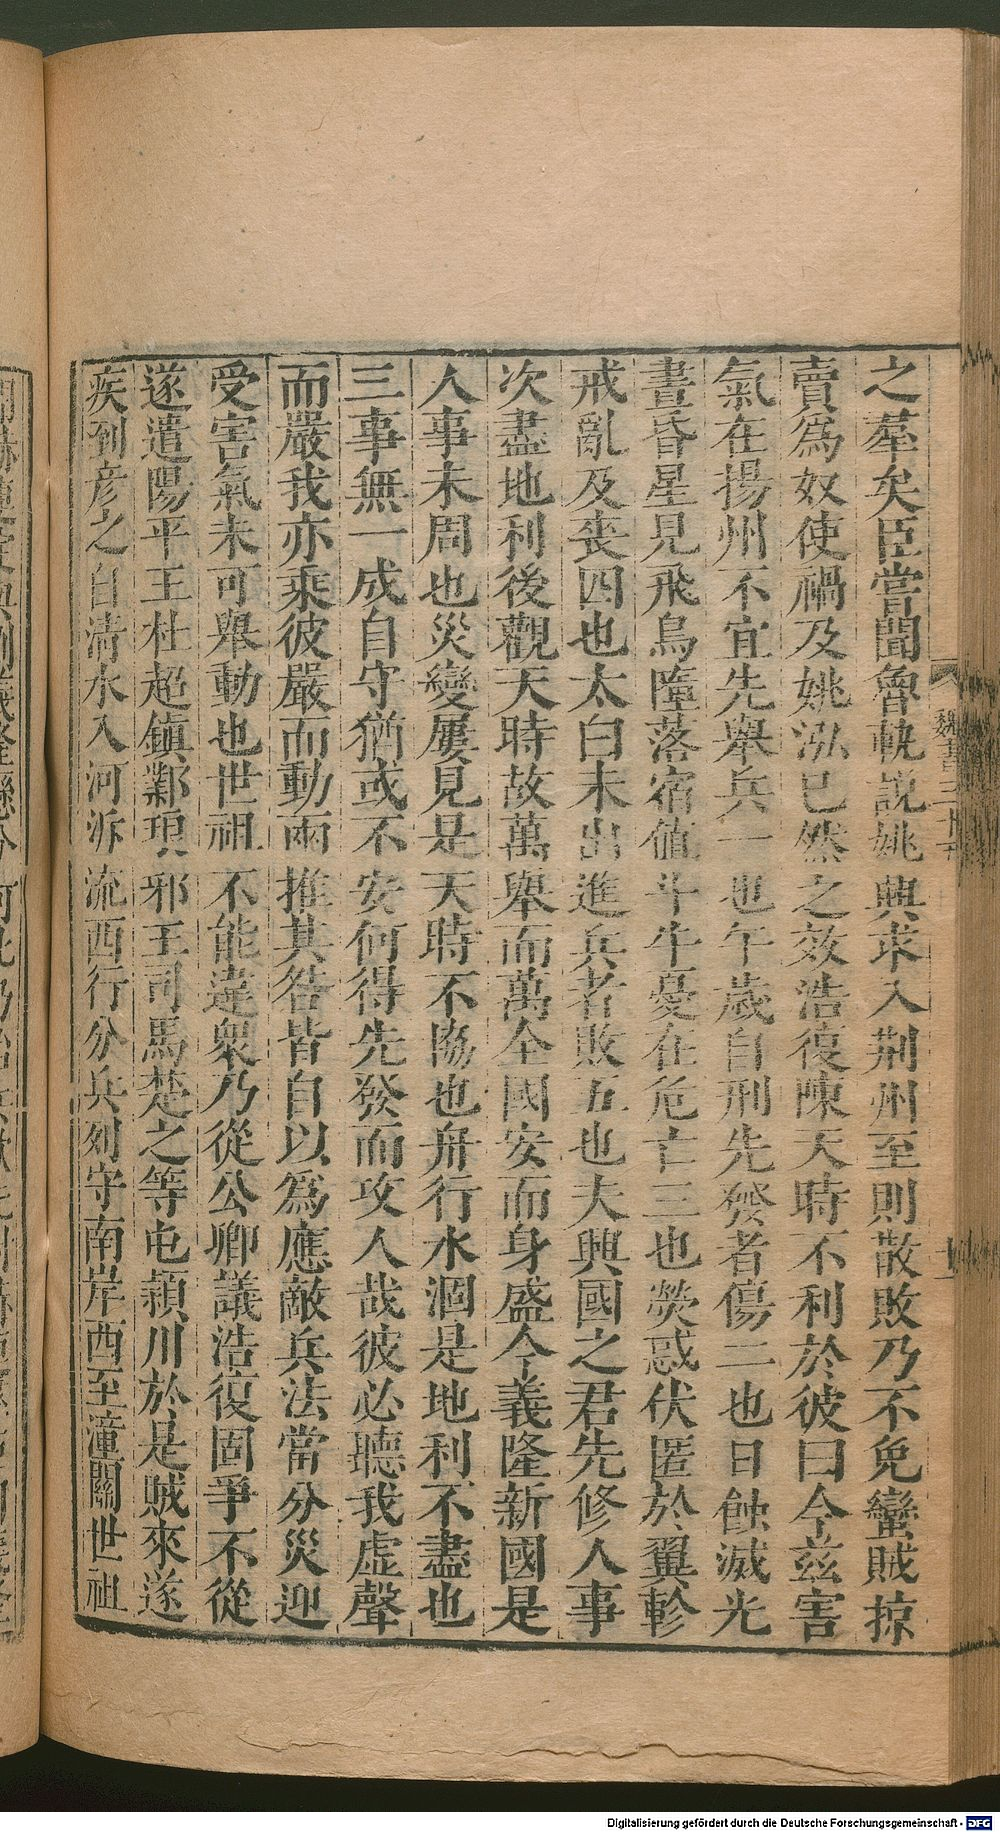 之羣矣臣嘗聞魯軌説姚興求入荆州至則散敗乃不免蠻賊掠
賣爲奴使禍及姚泓已然之效浩復陳天時不利於彼曰今兹害
氣在揚州不宜先舉兵一也午歲自刑先發者傷二也日蝕滅光
晝昏星見飛鳥墮落宿值斗牛憂在危亡三也熒惑伏匿於翼軫
戒亂及喪四也太白未出進兵者敗五也夫興國之君先修人事
次盡地利後觀天時故萬舉而萬全國安而身盛今義隆新國是
人事未周也災變屢見是天時不協也舟行水涸是地利不盡也
三事無一成自守猶或不安何得先發而攻人哉彼必聽我虛聲
而嚴我亦乘彼嚴而動兩推其咎皆自以爲應敵兵法當分災迎
受害氣未可舉動也世祖不能違衆乃從公卿議浩復固爭不從
遂遣陽平王杜超鎮鄴琅邪王司馬楚之等屯潁川於是賊來遂
疾到彦之自清水入河泝流西行分兵列守南岸西至潼關世祖
魏書三十五
Digitalisierung gefördert durch die Deutsche Forschungsgemeinschaft - DFG